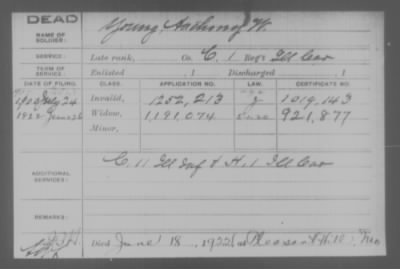 DEAD
NAME OF SOLDIER: Young, Anthony W.
SERVICE: Late rank, Co. C, 1 Reg't Ill Cav
TERM OF SERVICE: Enlisted , 1 Discharged , 1
DATE OF FILING. CLASS. APPLICATION NO. LAW. CERTIFICATE NO.
24 Invalid, 1252,213 1019,143
1922 June 26 Widow, 1,191,074 921,877
Minor,
ADDITIONAL SERVICES: C. 11 Ill Inf & H. 1 Ill Cav
REMARKS:
Died June 18, 1922, at Pleasant Hill, Mo